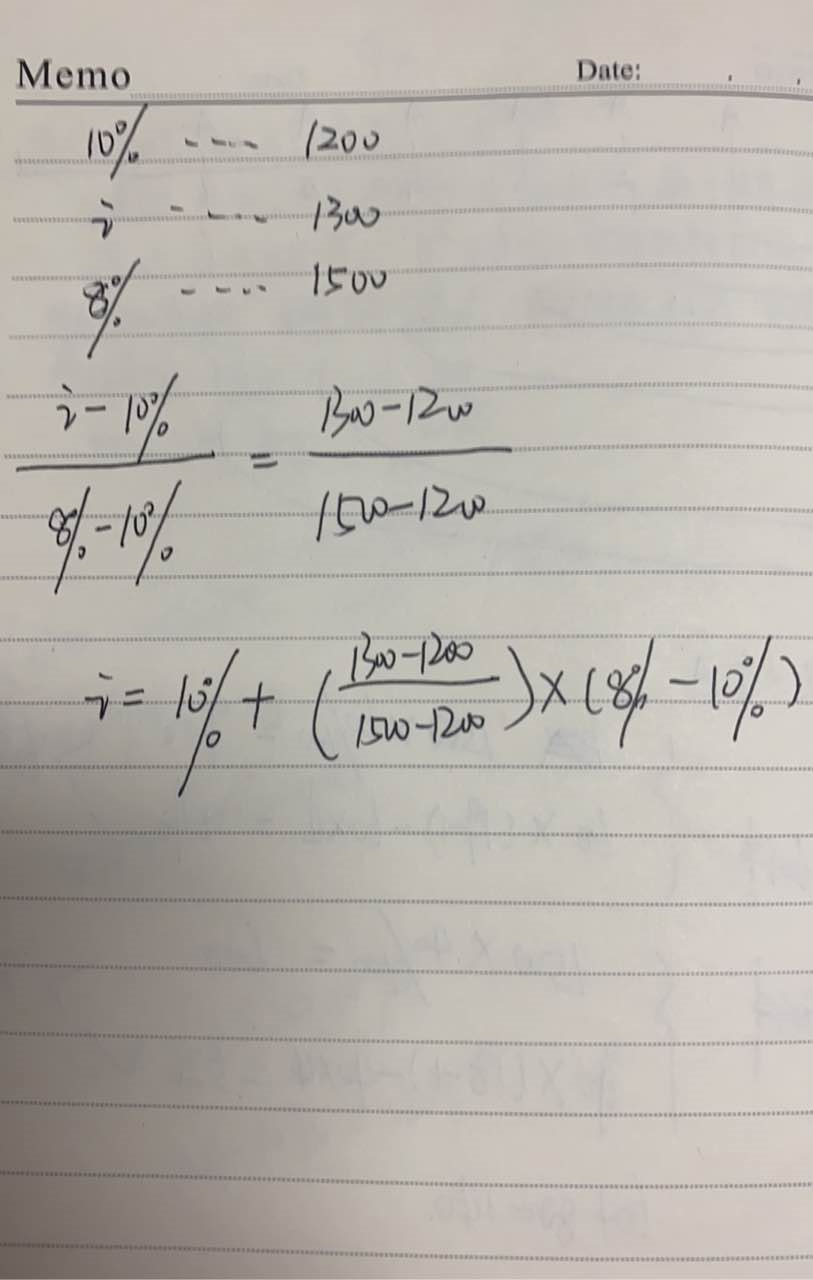 Memo Date: , ,
10% ---- 1200
i ---- 1300
8% ---- 1500
i-10% / 8%-10% = 1300-1200 / 1500-1200
i = 10% + (1300-1200 / 1500-1200) × (8%-10%)